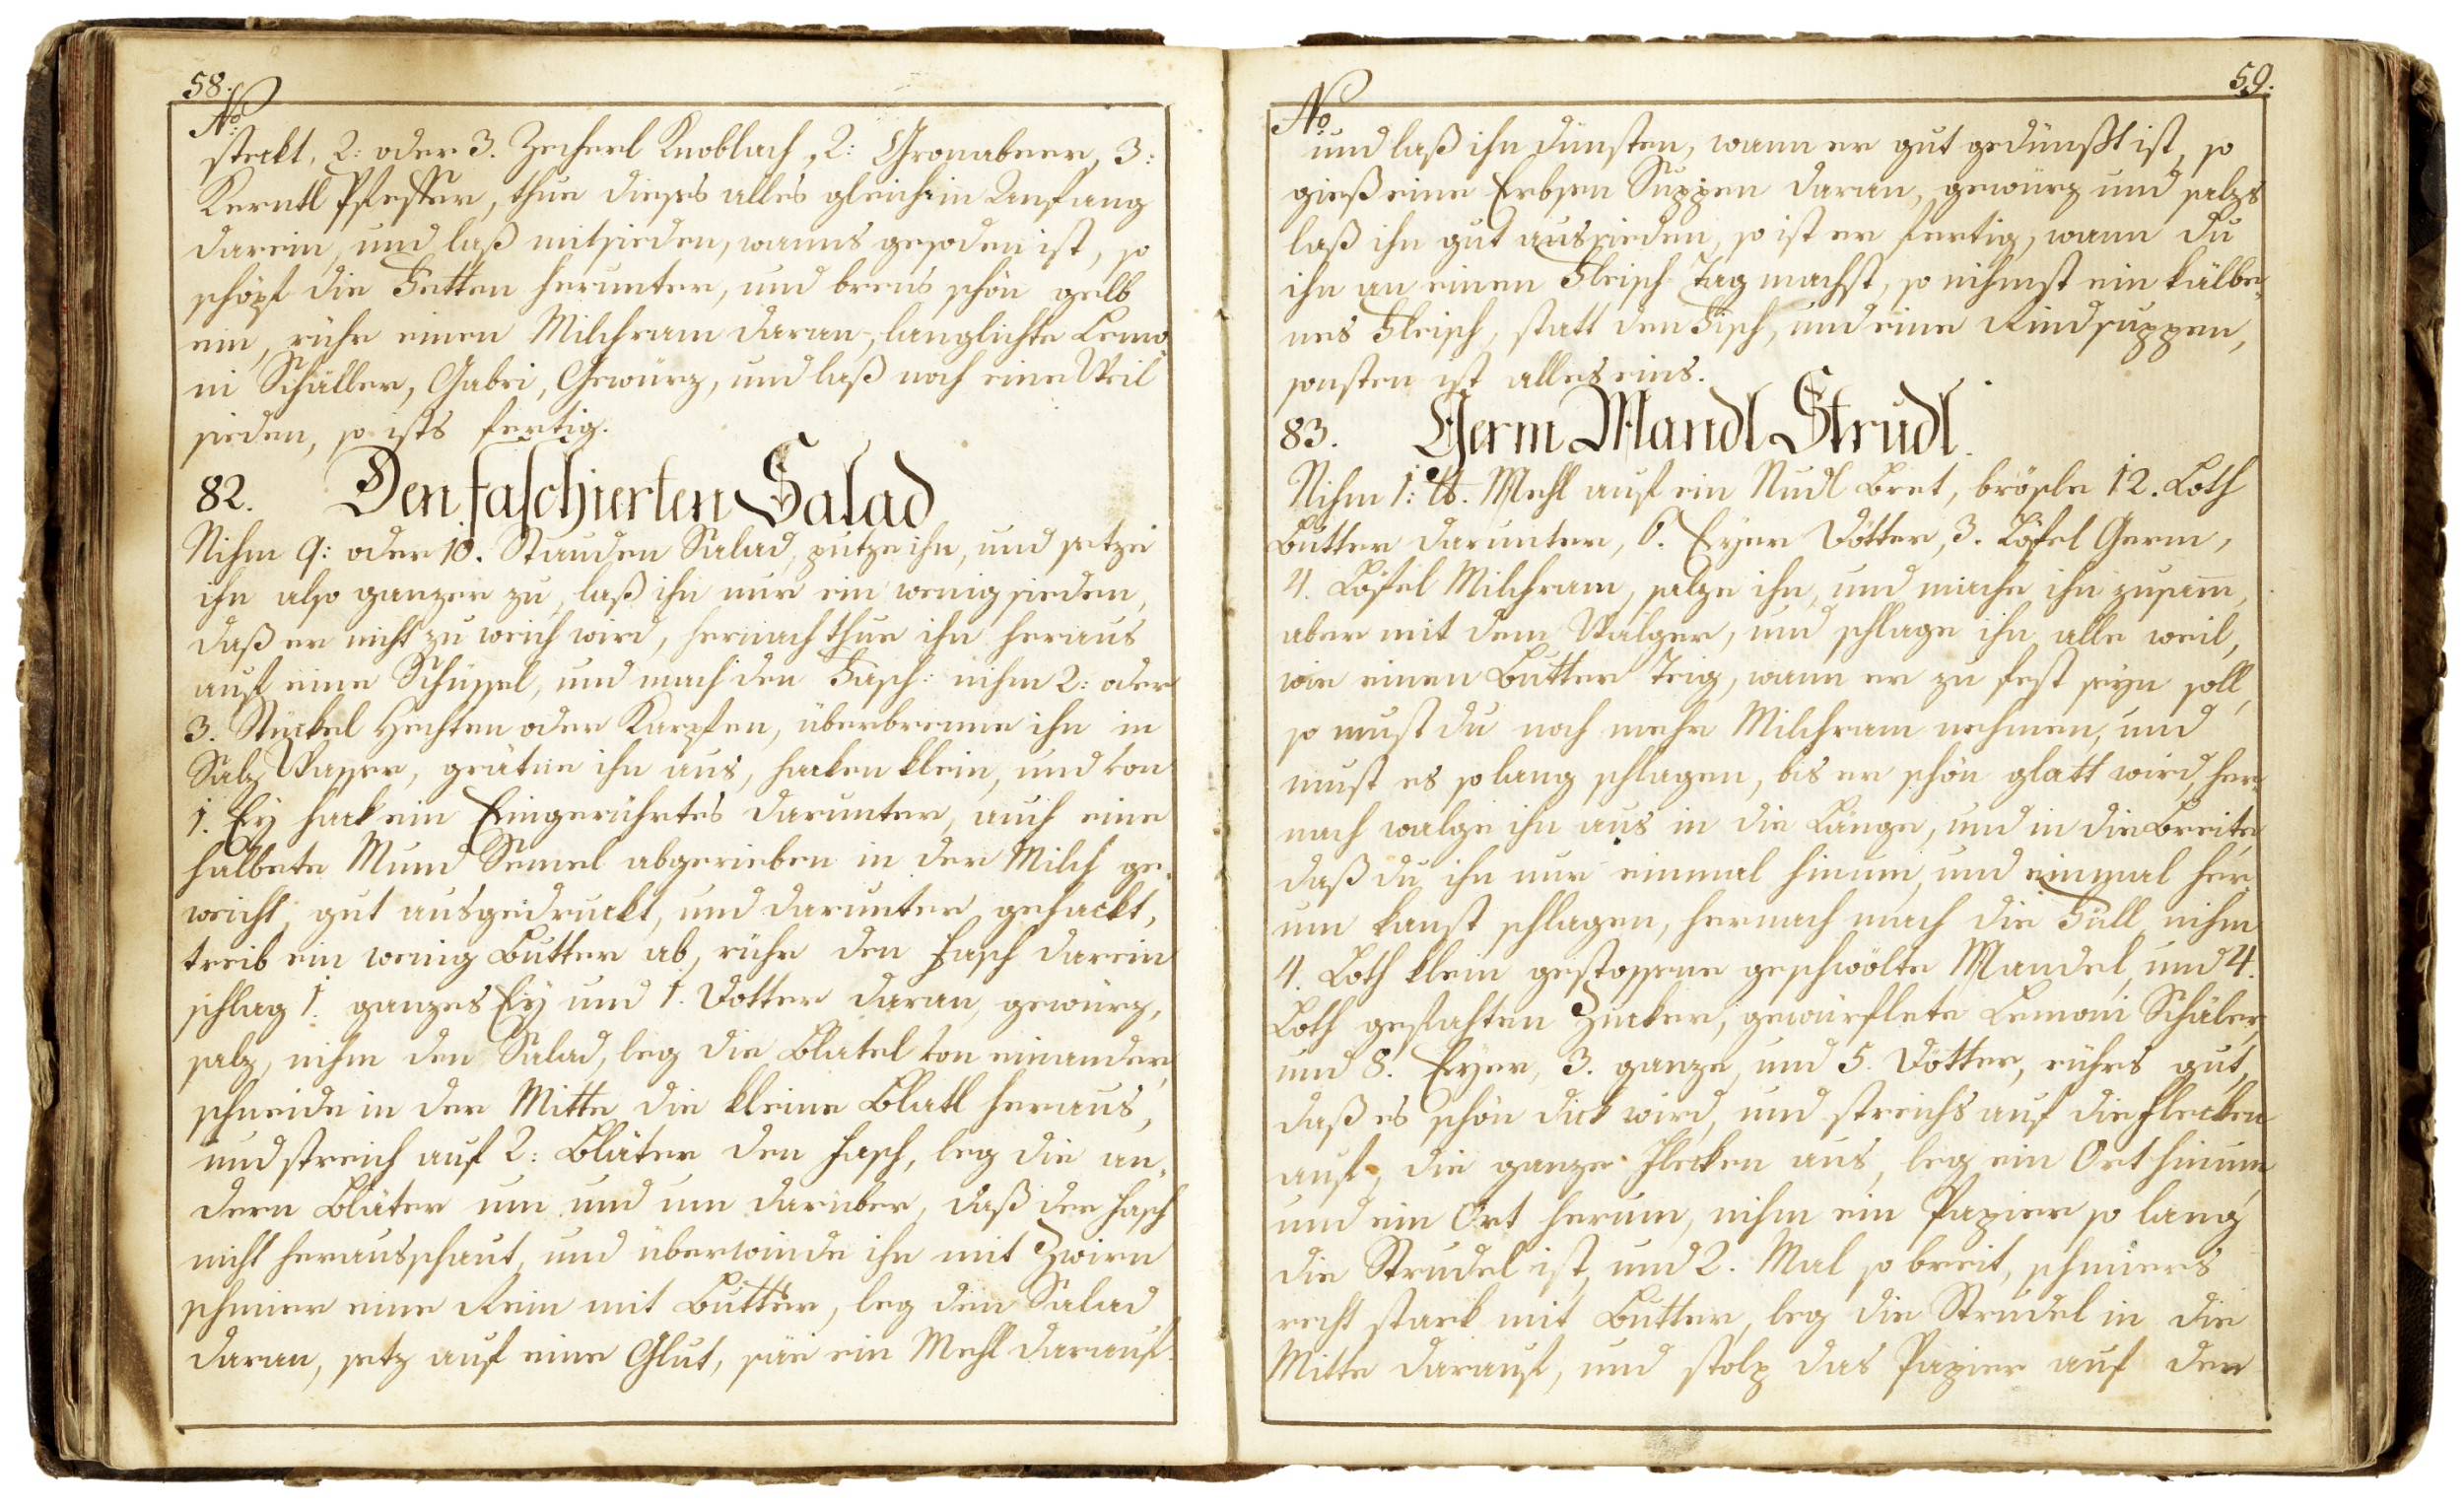 58.
No:
steckt, 2: oder 3. Zecherl Knoblach, 2: Gronabeer, 3:
Kerntl Pfeffer, thue dieses alles gleich in Anfang
darein, und laß mitsieden, wanns gesoden ist, so
schöpf die Fetten herunter, und brens schön gelb
ein, rühr einen Milchram daran, langlichte Lemo¬
ni Schäller, Gabri, Gewürz, und laß noch eine Weil
sieden, so ists fertig.
82. Den faschierten Salad
Nihm 9: oder 10. Stauden Salad, putze ihn, und setze
ihn also ganzer zu, laß ihn nur ein wenig sieden,
daß er nicht zu weich wird, hernach thue ihn heraus
auf eine Schüssel, und mach den Fasch: nihm 2: oder
3. Stückel Hechten oder Karpfen, überbrenne ihn in
Salz Wasser, grätne ihn aus, hacken klein, und von
1. Ey hack ein Eingerührtes darunter, auch eine
halbete Mund Semel abgerieben in der Milch ge¬
weicht, gut ausgedruckt, und darunter gehackt,
treib ein wenig Butter ab, rühr den Fasch darein
schlag 1. ganzes Ey und 1. Dotter daran, gewürz,
salz, nihm den Salad, leg die Blatel von einander,
schneide in der Mitte die kleine Blatl heraus,
und streich auf 2: Bläter den Fasch, leg die an¬
dern Bläter um und um darüber, daß der Fasch
nicht herausschaut, und überwinde ihn mit Zwirn
schmier eine Rein mit Butter, leg den Salad
daran, setz auf eine Glut, säe ein Mehl darauf
59.
No:
und laß ihn dünsten, wann er gut gedünßt ist, so
gieß eine Erbsen Suppen daran, gewürz und salzs
laß ihn gut aussieden, so ist er fertig, wann du
ihn an einen Fleisch Tag machst, so nihmst ein kälbe¬
nes Fleisch, statt den Fisch, und eine Rindsuppen,
sonsten ist alles eins.
83. Germ Mandl Strudl.
Nihm 1: ℔. Mehl auf ein Nudl Bret, brösle 12. Loth
Butter darunter, 6. Eyer Dötter, 3. Löfel Germ,
4. Löfel Milchram, salze ihn, und mache ihn zusam̅,
aber mit dem Walger, und schlage ihn alle weil,
wie einen Butter Teig, wann er zu fest seyn soll,
so must du noch mehr Milchram nehmen, und
must es so lang schlagen, bis er schön glatt wird, her¬
nach walge ihn aus in die Länge, und in die Breite,
daß du ihn nur einmal hinum, und einmal her¬
um kanst schlagen, hernach mach die Füll, nihm
4. Loth klein gestossene geschwölte Mandel, und 4.
Loth gestahten Zucker, gewürflete Lemoni Schäler,
und 8. Eyer, 3. ganze, und 5. Dötter, rührs gut,
daß es schön dick wird, und streichs auf die Flecken
auf, die ganze Flecken aus, leg ein Ort hinum,
und ein Ort herum, nihm ein Papier so lang
die Strudel ist, und 2. Mal so breit, schmiers
recht stark mit Butter, leg die Strudel in die
Mitte darauf, und stolp das Papier auf der